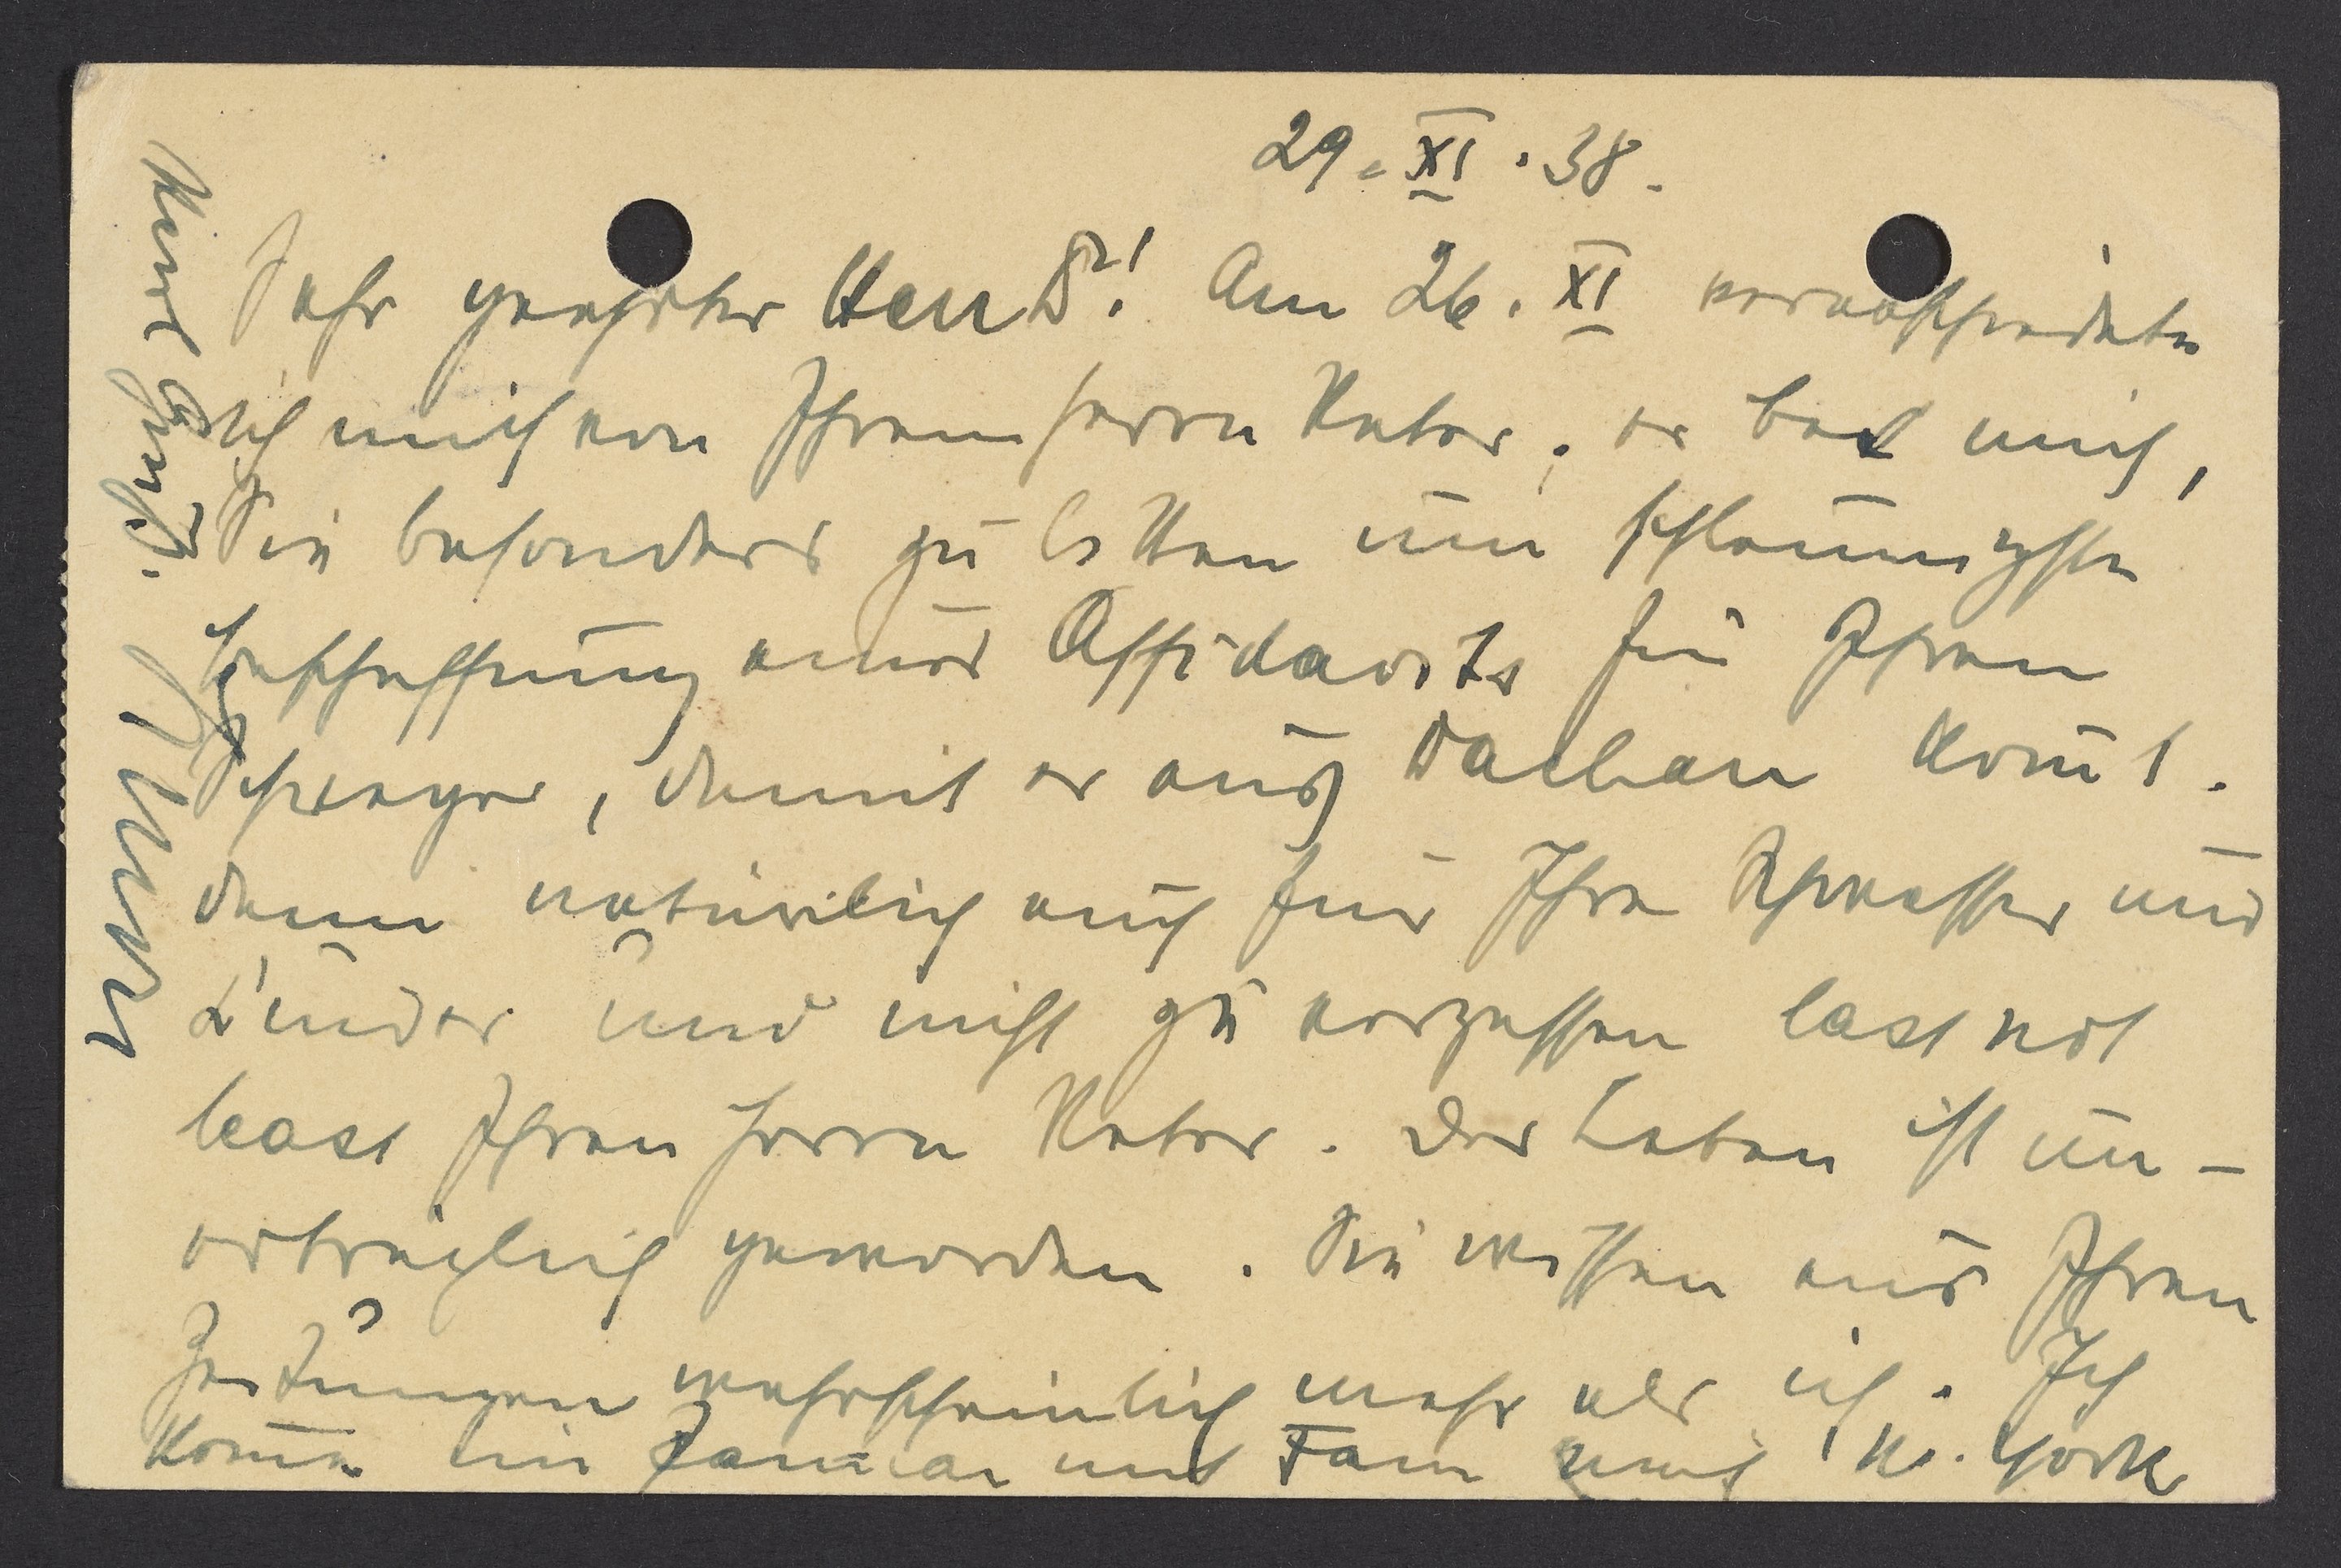 29. XI. 38.
Sehr geehrter Herr Dr! Am 26. XI verabschiedete
ich mich von Ihrem Herrn Vater; er bat mich,
Sie besonders zu bitten um schleunigste
Beschaffung eines Affidavits für Ihren
Schwager, damit er aus Dachau kom̄t.
dann natürlich auch für Ihre Schwester und
Kinder und nicht zu vergessen last not
least Ihren Herrn Vater. Das Leben ist un-
erträglich geworden. Sie wissen aus Ihren
Zeitungen wahrscheinlich mehr als ich. Ich
kom̄e im Januar mit Fam nach N. York
Gruß.